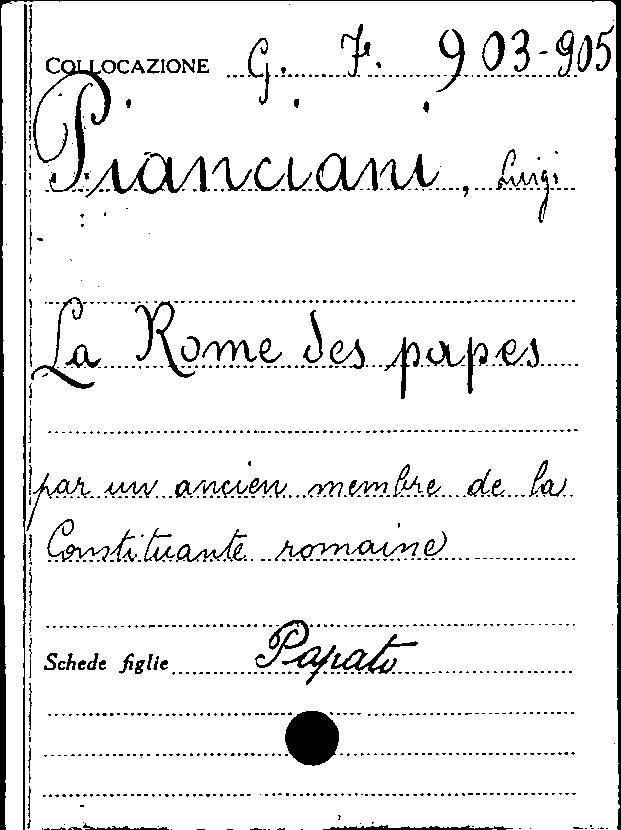 COLLOCAZIONE G. F. 903-905
Pianciani, Luigi
La Rome des papes
par un ancien membre de la
Constituante romaine
Schede figlie Papato